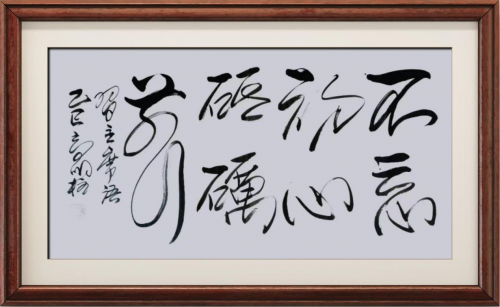 不忘
初心
砥礪
前行
習主席語
乙巳